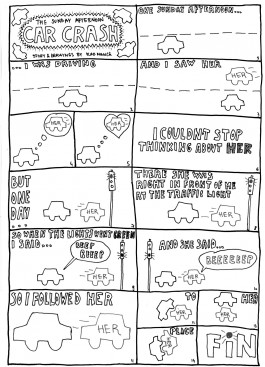 THE SUNDAY AFTERNOON
CAR CRASH
ONE SUNDAY AFTERNOON...
... I WAS DRIVING
AND I SAW HER
HER
HER
HER
I COULDN'T STOP
THINKING ABOUT HER
BUT
ONE
DAY
...
HER
THERE SHE WAS
RIGHT IN FRONT OF ME
AT THE TRAFFIC LIGHT
HER
SO WHEN THE LIGHTS WENT GREEN
I SAID...
BEEP
BEEP
HER
AND SHE SAID...
BEEEEEEP
HER
SO I FOLLOWED HER
HER
TO
HER
HER
PLACE
FiN